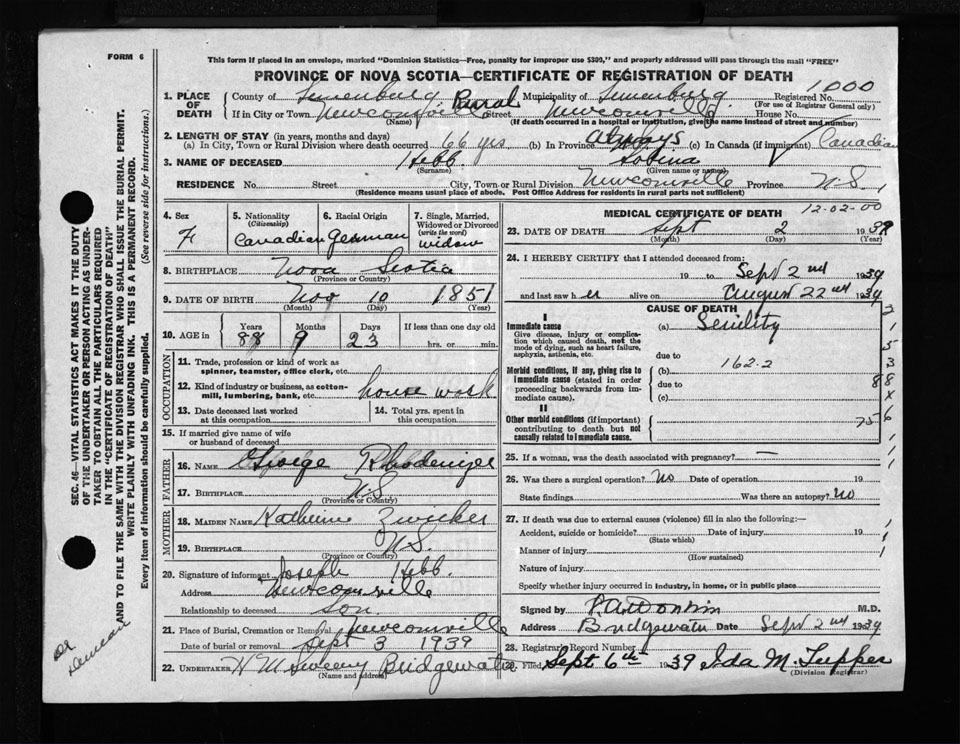 FORM 6
This form if placed in an envelope, marked "Dominion Statistics—Free, penalty for improper use $300," and properly addressed will pass through the mail "FREE"
PROVINCE OF NOVA SCOTIA—CERTIFICATE OF REGISTRATION OF DEATH
1. PLACE OF DEATH County of Lunenburg Rural Municipality of Lunenburg Registered No. 1000
(For use of Registrar General only)
If in City or Town Newcomville Street Newcomville House No.
(Name) (If death occurred in a hospital or institution, give the name instead of street and number)
2. LENGTH OF STAY (in years, months and days)
(a) In City, Town or Rural Division where death occurred 66 yrs (b) In Province always (c) In Canada (if immigrant) Canadian
3. NAME OF DECEASED Hebb Sobina
(Surname) (Given name or names)
RESIDENCE No. Street City, Town or Rural Division Newcomville Province N.S.
(Residence means usual place of abode. Post Office Address for residents in rural parts not sufficient)
4. Sex F
5. Nationality (Citizenship) Canadian
6. Racial Origin German
7. Single, Married, Widowed or Divorced (write the word) widow
8. BIRTHPLACE Nova Scotia
(Province or Country)
9. DATE OF BIRTH Nov 10 1851
(Month) (Day) (Year)
10. AGE in Years Months Days If less than one day old
88 9 23 hrs. or min.
OCCUPATION
11. Trade, profession or kind of work as spinner, teamster, office clerk, etc.
12. Kind of industry or business, as cotton-mill, lumbering, bank, etc. house work
13. Date deceased last worked at this occupation
14. Total yrs. spent in this occupation
15. If married give name of wife or husband of deceased
FATHER
16. NAME George Rhodenizer
17. BIRTHPLACE N.S.
(Province or Country)
MOTHER
18. MAIDEN NAME Katherine Zwicker
19. BIRTHPLACE N.S.
(Province or Country)
20. Signature of informant Joseph Hebb
Address Newcomville
Relationship to deceased son
21. Place of Burial, Cremation or Removal Newcomville
Date of burial or removal Sept 3 1939
22. UNDERTAKER Bridgewater
(Name and address)
MEDICAL CERTIFICATE OF DEATH 12-02-00
23. DATE OF DEATH Sept 2 1939
(Month) (Day) (Year)
24. I HEREBY CERTIFY that I attended deceased from:
19 to Sept 2nd 1939
and last saw h er alive on August 22nd 1939
CAUSE OF DEATH
I
Immediate cause (a) Senility
Give disease, injury or complication which caused death, not the mode of dying, such as heart failure, asphyxia, asthenia, etc.
due to
Morbid conditions, if any, giving rise to immediate cause (stated in order proceeding backwards from immediate cause).
(b) 162-2
due to
(c)
II
Other morbid conditions (if important) contributing to death but not causally related to immediate cause.
25. If a woman, was the death associated with pregnancy? —
26. Was there a surgical operation? No Date of operation 19
State findings Was there an autopsy? No
27. If death was due to external causes (violence) fill in also the following:—
Accident, suicide or homicide? Date of injury 19
(State which)
Manner of injury
(How sustained)
Nature of injury
Specify whether injury occurred in industry, in home, or in public place
Signed by M.D.
Address Bridgewater Date Sept 2nd 1939
28. Registrar's Record Number
29. Filed Sept. 6th 1939 Ida M. Tupper
(Division Registrar)
SEC. 46—VITAL STATISTICS ACT MAKES IT THE DUTY
OF THE UNDERTAKER OR PERSON ACTING AS UNDERTAKER
TO OBTAIN ALL THE PARTICULARS REQUIRED
IN THE "CERTIFICATE OF REGISTRATION OF DEATH"
AND TO FILE THE SAME WITH THE DIVISION REGISTRAR WHO SHALL ISSUE THE BURIAL PERMIT.
WRITE PLAINLY WITH UNFADING INK. THIS IS A PERMANENT RECORD.
Every item of information should be carefully supplied. (See reverse side for instructions.)